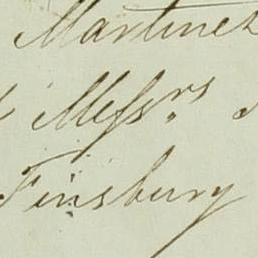 Martinet
Messrs.
Finsbury